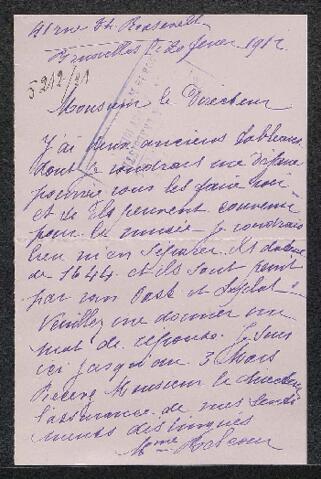 rue Th. Roosevelt
Bruxelles le 20 fevier 1912
5212/21
Monsieur le Directeur
J'ai deux anciens tableaux
dont je voudrais me défaire
pourrai vous les faire voir
et si ils peuvent convenir
pour le musée je voudrais
bien m'en séparer. Ils datent
de 1644 et ils sont peint
par van Oost et
Veuillez me donner un
mot de réponse. Je suis
ici jusqu'au 3 Mars
Recevez Monsieur le directeur
l'assurance de mes senti
ments distingués
Mme